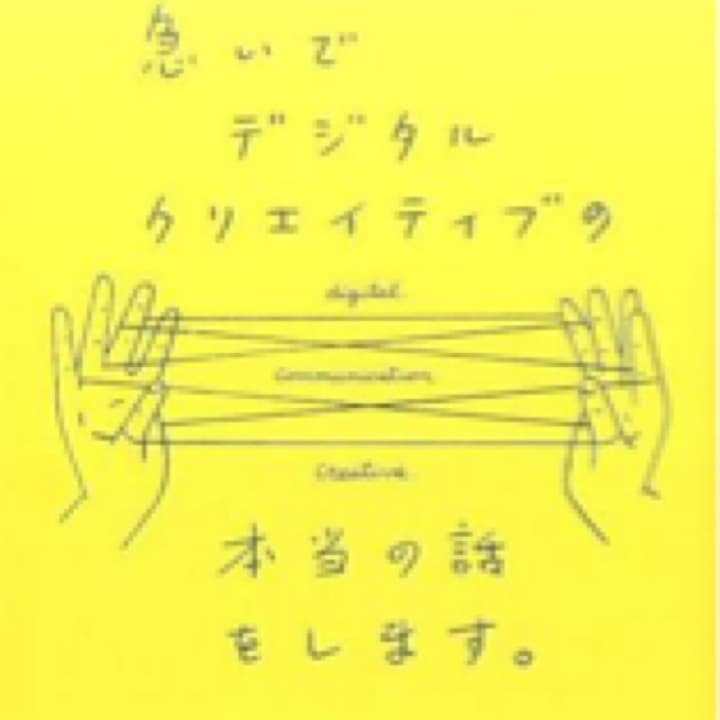 急いで
デジタル
クリエイティブの
digital
Communication
Creative
本当の話
をします。